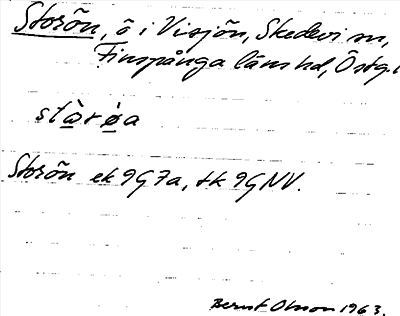 Storön, ö i Visjön, Skedevi sn,
Finspånga läns hd, Östg.l
stòrǿa
Storön ek 9G7a, tk 9GNV.
Bernt Olsson 1963.